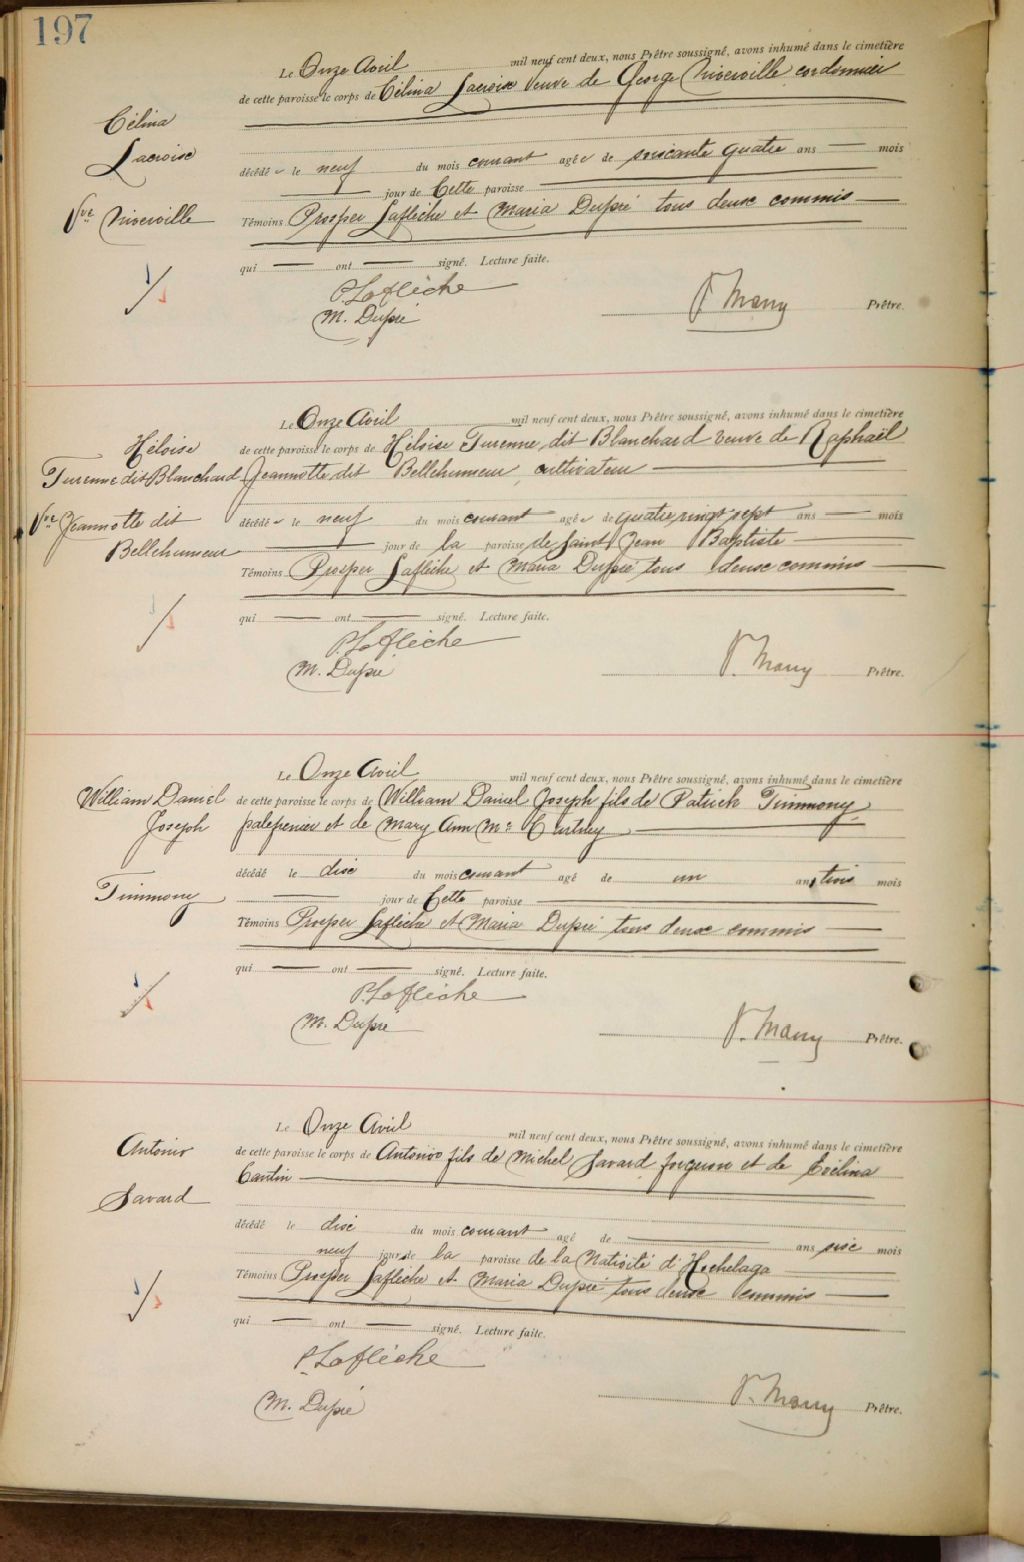 197
Le Onze Avril mil neuf cent deux, nous Prêtre soussigné, avons inhumé dans le cimetière
de cette paroisse le corps de Célina Lacroix veuve de George Niverville cordonnier
Célina
Lacroix
décédée le neuf du mois courant agée de soixante quatre ans — mois
— jour de Cette paroisse —
Vve Niverville
Témoins Prosper Laflèche et Maria Dupré tous deux commis —
qui — ont — signé. Lecture faite.
P. Laflèche
M. Dupré
P. Manny Prêtre.
Le Onze Avril mil neuf cent deux, nous Prêtre soussigné, avons inhumé dans le cimetière
Héloise
de cette paroisse le corps de Héloise Turenne dit Blanchard veuve de Raphaël
Turenne dit Blanchard
Jeannotte dit Bellehumeur, cultivateur —
Vve Jeannotte dit
Bellehumeur
décédée le neuf du mois courant agée de quatre vingt sept ans — mois
— jour de la paroisse de Saint Jean Baptiste —
Témoins Prosper Laflèche et Maria Dupré tous deux commis —
qui — ont — signé. Lecture faite.
P. Laflèche
M. Dupré
P. Manny Prêtre.
Le Onze Avril mil neuf cent deux, nous Prêtre soussigné, avons inhumé dans le cimetière
William Daniel
Joseph
de cette paroisse le corps de William Daniel Joseph fils de Patrick Timmony,
palefrenier et de Mary Ann Mc —
décédé le dix du mois courant agé de un an, trois mois
Timmony
— jour de Cette paroisse —
Témoins Prosper Laflèche et Maria Dupré tous deux commis —
qui — ont — signé. Lecture faite.
P. Laflèche
M. Dupré
P. Manny Prêtre.
Le Onze Avril mil neuf cent deux, nous Prêtre soussigné, avons inhumé dans le cimetière
Antonio
de cette paroisse le corps de Antonio fils de Michel Savard forgeron et de Exélina
Cantin —
Savard
décédé le dix du mois courant agé de — ans six mois
neuf jours de la paroisse de la Nativité d'Hochelaga —
Témoins Prosper Laflèche et Maria Dupré tous deux commis —
qui — ont — signé. Lecture faite.
P. Laflèche
M. Dupré
P. Manny Prêtre.